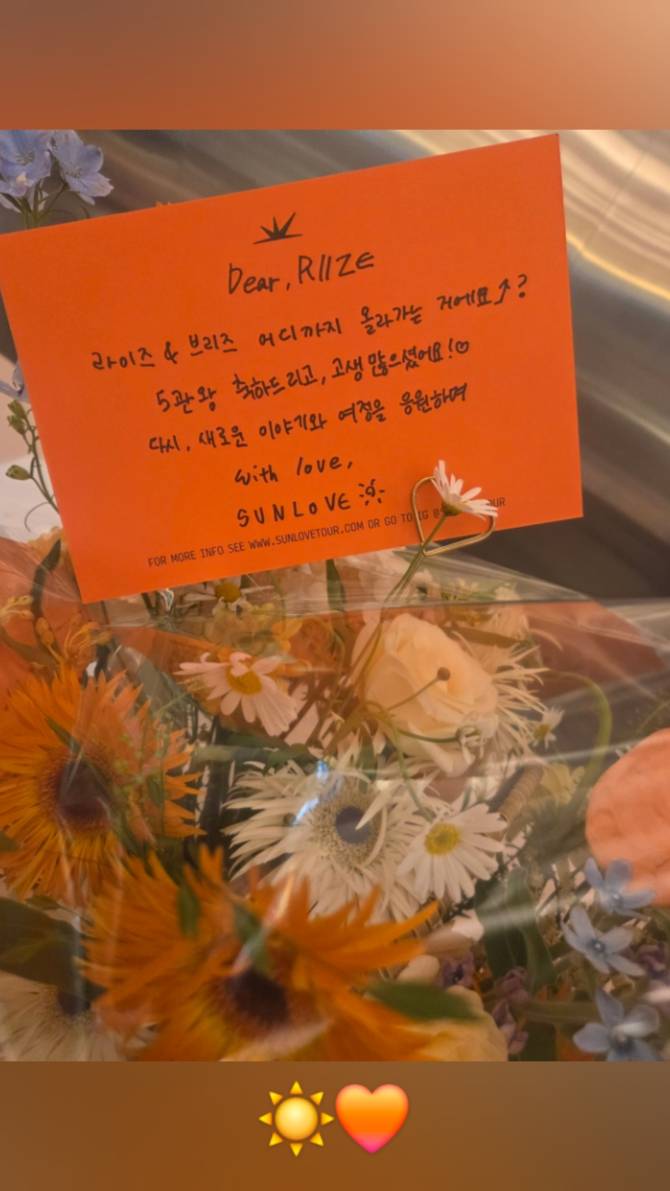 Dear, RIIZE
라이즈 & 브리즈 어디까지 올라가는 거에요↗?
5관왕 축하드리고, 고생 많으셨어요!♡
다시, 새로운 이야기와 여정을 응원하며
with love,
SUNLOVE
FOR MORE INFO SEE WWW.SUNLOVETOUR.COM OR GO TO IG